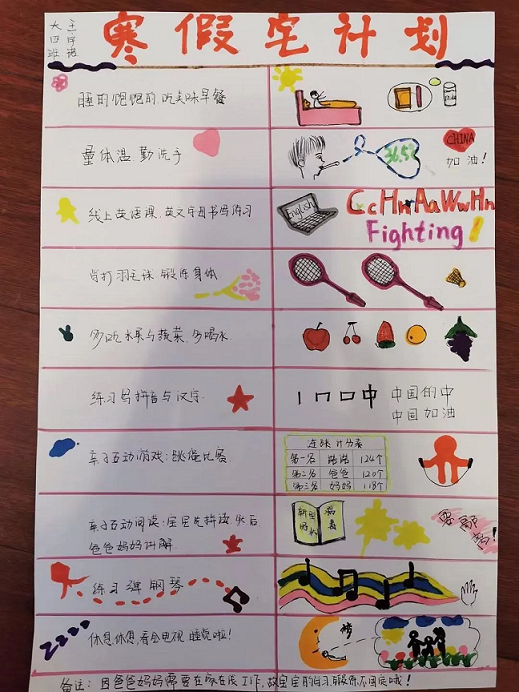 寒假宅计划
大四班
睡的饱饱的 吃美味早餐
量体温 勤洗手
36.5°
CHINA
加油!
线上英语课,英文字母书写练习
English
CcHhAaWwHh
Fighting!
打羽毛球 锻炼身体
多吃水果与蔬菜,多喝水
练习写拼音与汉字.
丨 冂 口 中
中国的中
中国加油
亲子互动游戏:跳绳比赛
连跳计分表
第一名 诺诺 124个
第二名 爸爸 120个
第三名 妈妈 118个
亲子互动阅读:宝宝先拼读,然后
爸爸妈妈讲解.
练习弹钢琴
ZZZZ
休息休息,看会电视,睡觉啦!
梦
备注:因爸爸妈妈需要在家在线工作,故宝宝的学习